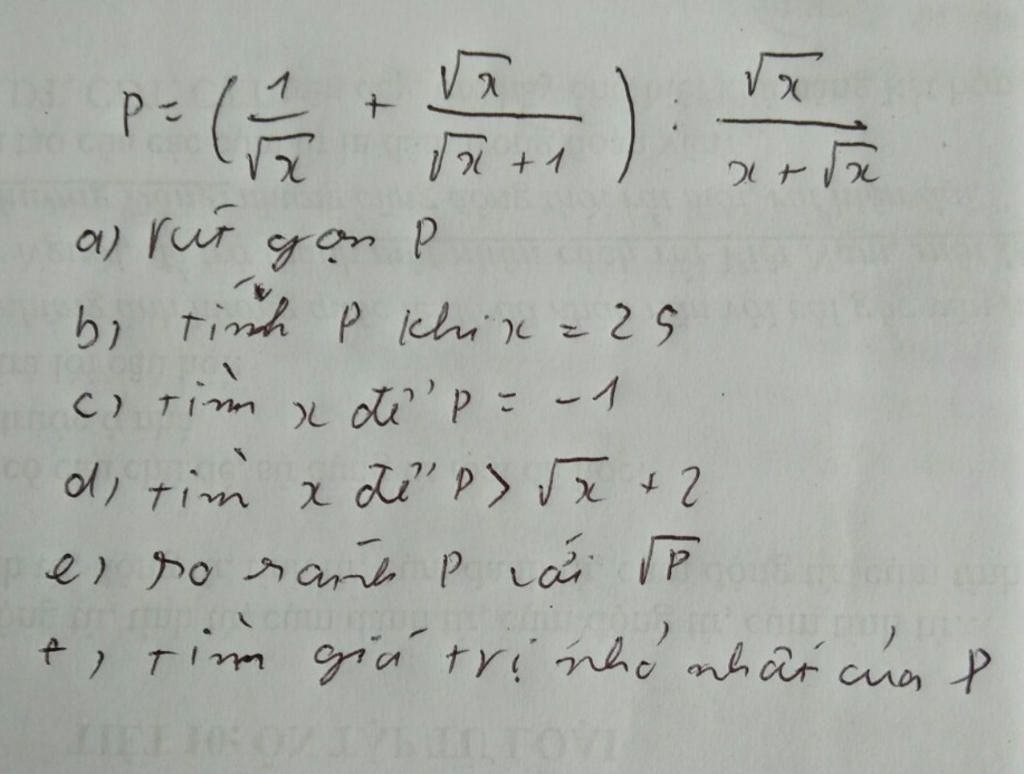 P = (1/√x + √x/(√x + 1)) : √x/(x + √x)
a) rút gọn P
b) tính P khi x = 25
c) tìm x để P = -1
d) tìm x để P > √x + 2
e) so sánh P với √P
f) tìm giá trị nhỏ nhất của P